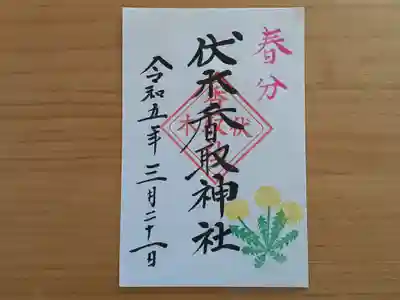 春分
伏木香取神社
令和五年三月二十一日